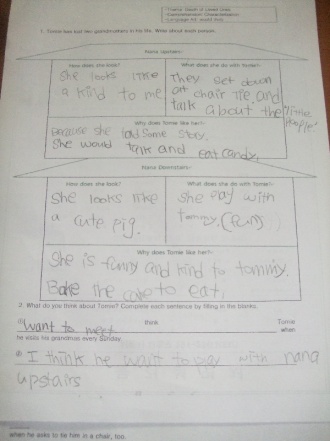 Theme: Death of Loved Ones
Comprehension: Characterization
1. Tomie has lost two grandmothers in his life. Write about each person.
Nana Upstairs
How does she look?
What does she do with Tomie?
She looks like
a kind to me
They set down
at chair tie, and
talk about the "little
people"
Why does Tomie like her?
Because she told some story.
She would talk and eat candy.
Nana Downstairs
How does she look?
What does she do with Tomie?
She looks like
a cute pig.
She pay with
tommy. (fun)
Why does Tomie like her?
She is funny and kind to tommiy.
Bake the cake to eat.
2. What do you think about Tomie? Complete each sentence by filling in the blanks.
(1) want to meet think Tomie
when
he visits his grandmas every Sunday.
(2) I think he want to pay with nana
upstairs
when he asks to tie him in a chair, too.